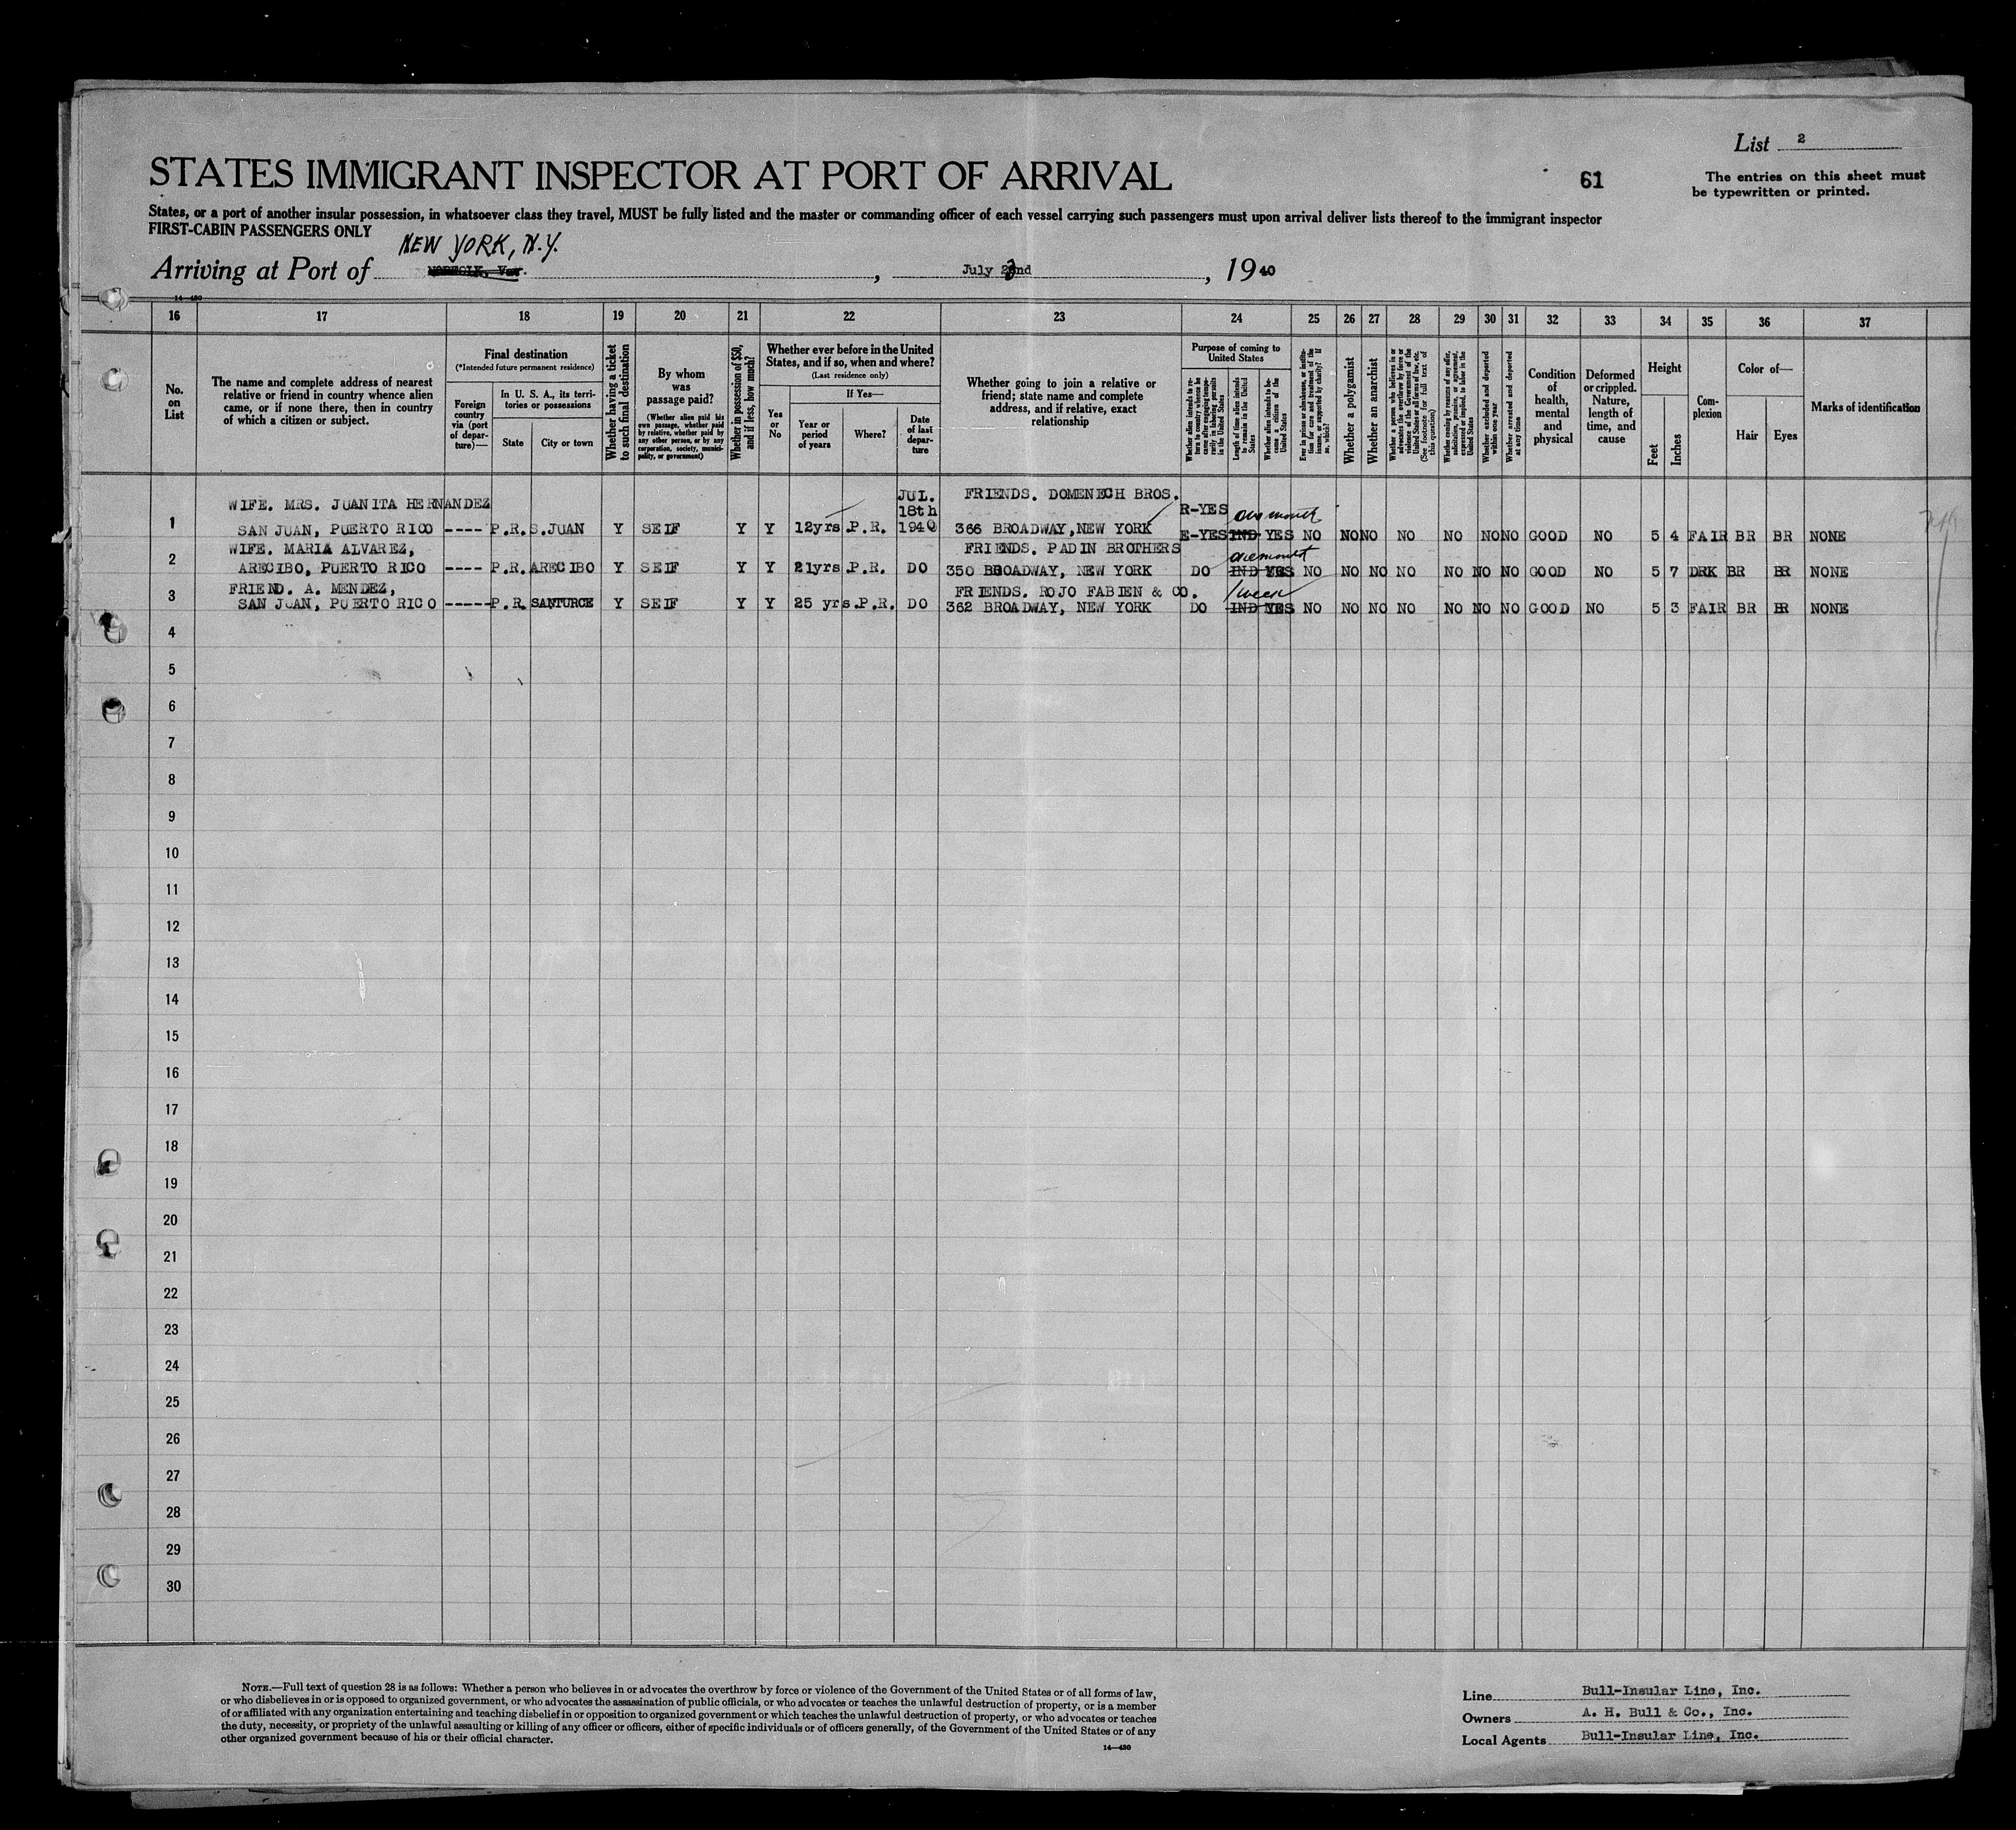 List 2
STATES IMMIGRANT INSPECTOR AT PORT OF ARRIVAL
61
The entries on this sheet must
be typewritten or printed.
States, or a port of another insular possession, in whatsoever class they travel, MUST be fully listed and the master or commanding officer of each vessel carrying such passengers must upon arrival deliver lists thereof to the immigrant inspector
FIRST-CABIN PASSENGERS ONLY
NEW YORK, N.Y.
Arriving at Port of NORFOLK, Va. , July , 1940
14-480
16 17 18 19 20 21 22 23 24 25 26 27 28 29 30 31 32 33 34 35 36 37
No. on List
The name and complete address of nearest relative or friend in country whence alien came, or if none there, then in country of which a citizen or subject.
Final destination
(*Intended future permanent residence)
Foreign country via (port of departure)—
In U. S. A., its territories or possessions
State
City or town
Whether having a ticket to such final destination
By whom was passage paid?
(Whether alien paid his own passage, whether paid by relative, whether paid by any other person, or by any corporation, society, municipality, or government)
Whether in possession of $50, and if less, how much?
Whether ever before in the United States, and if so, when and where?
(Last residence only)
Yes or No
If Yes—
Year or period of years
Where?
Date of last departure
Whether going to join a relative or friend; state name and complete address, and if relative, exact relationship
Purpose of coming to United States
Whether alien intends to return to country whence he came after engaging temporarily in laboring pursuits in the United States
Length of time alien intends to remain in the United States
Whether alien intends to become a citizen of the United States
Ever in prison or almshouse, or institution for care and treatment of the insane, or supported by charity? If so, which?
Whether a polygamist
Whether an anarchist
Whether a person who believes in or advocates the overthrow by force or violence of the Government of the United States or all forms of law, etc. (See footnote for full text of this question)
Whether coming by reasons of any offer, solicitation, promise, or agreement, expressed or implied, to labor in the United States
Whether excluded and deported within one year
Whether arrested and deported at any time
Condition of health, mental and physical
Deformed or crippled. Nature, length of time, and cause
Height
Feet
Inches
Complexion
Color of—
Hair
Eyes
Marks of identification
WIFE. MRS. JUANITA HERNANDEZ JUL. 18th 1940 FRIENDS. DOMENECH BROS. R-YES one month
1 SAN JUAN, PUERTO RICO ---- P.R. S.JUAN Y SELF Y Y 12yrs. P.R. 366 BROADWAY, NEW YORK E-YES IND YES NO NO NO NO NO NO NO GOOD NO 5 4 FAIR BR BR NONE
WIFE. MARIA ALVAREZ, FRIENDS. PADIN BROTHERS one month
2 ARECIBO, PUERTO RICO ---- P.R. ARECIBO Y SELF Y Y 21yrs. P.R. DO 350 BROADWAY, NEW YORK DO IND YES NO NO NO NO NO NO NO GOOD NO 5 7 DRK BR BR NONE
FRIEND. A. MENDEZ, FRIENDS. ROJO FABIEN & CO. 1 week
3 SAN JUAN, PUERTO RICO ----- P.R. SANTURCE Y SELF Y Y 25 yrs. P.R. DO 362 BROADWAY, NEW YORK DO IND YES NO NO NO NO NO NO NO GOOD NO 5 3 FAIR BR BR NONE
4
5
6
7
8
9
10
11
12
13
14
15
16
17
18
19
20
21
22
23
24
25
26
27
28
29
30
NOTE.—Full text of question 28 is as follows: Whether a person who believes in or advocates the overthrow by force or violence of the Government of the United States or of all forms of law,
or who disbelieves in or is opposed to organized government, or who advocates the assassination of public officials, or who advocates or teaches the unlawful destruction of property, or is a member
of or affiliated with any organization entertaining and teaching disbelief in or opposition to organized government or which teaches the unlawful destruction of property, or who advocates or teaches
the duty, necessity, or propriety of the unlawful assaulting or killing of any officer or officers, either of specific individuals or of officers generally, of the Government of the United States or of any
other organized government because of his or their official character.
14-480
Line Bull-Insular Line, Inc.
Owners A. H. Bull & Co., Inc.
Local Agents Bull-Insular Line, Inc.